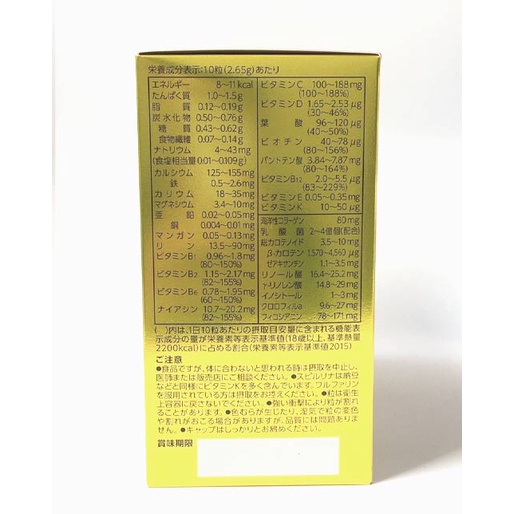 栄養成分表示:10粒(2.65g)あたり
エネルギー 8〜11kcal
たんぱく質 1.0〜1.5g
脂質 0.12〜0.19g
炭水化物 0.50〜0.76g
糖質 0.43〜0.62g
食物繊維 0.07〜0.14g
ナトリウム 4〜43mg
(食塩相当量0.01〜0.109g)
カルシウム 125〜155mg
鉄 0.5〜2.6mg
カリウム 18〜35mg
マグネシウム 3.4〜10mg
亜鉛 0.02〜0.05mg
銅 0.004〜0.01mg
マンガン 0.05〜0.13mg
リン 13.5〜90mg
ビタミンB₁ 0.96〜1.8mg
(80〜150%)
ビタミンB₂ 1.15〜2.17mg
(82〜155%)
ビタミンB₆ 0.78〜1.95mg
(60〜150%)
ナイアシン 10.7〜20.2mg
(82〜155%)
ビタミンC 100〜188mg
(100〜188%)
ビタミンD 1.65〜2.53μg
(30〜46%)
葉酸 96〜120μg
(40〜50%)
ビオチン 40〜78μg
(80〜156%)
パントテン酸 3.84〜7.87mg
(80〜164%)
ビタミンB₁₂ 2.0〜5.5μg
(83〜229%)
ビタミンE 0.05〜0.35mg
ビタミンK 10〜50μg
海洋性コラーゲン 80mg
乳酸菌 2〜4億個(配合)
総カロテノイド 3.5〜10mg
β-カロテン 1,570〜4,560μg
ゼアキサンチン 1.1〜3.5mg
リノール酸 16.4〜25.2mg
γ-リノレン酸 14.8〜29mg
イノシトール 1〜3mg
クロロフィルa 9.6〜27mg
フィコシアニン 78〜171mg
( )内は、1日10粒あたりの摂取目安量に含まれる機能表
示成分の量が栄養素等表示基準値(18歳以上、基準熱量
2200kcal)に占める割合(栄養素等表示基準値2015)
ご注意
●食品ですが、体に合わないと思われる時は摂取を中止し、
医師または販売店にご相談ください。●スピルリナは納豆
などと同様にビタミンKを多く含んでいます。ワルファリン
を服用されている方は摂取をお控えください。●粒は衛生
上容器に戻さないでください。●強い衝撃により粒が割れ
ることがあります。●色むらが生じたり、湿気で粒の変色
や割れがおこる場合がありますが、品質には問題ありませ
ん。●キャップはしっかりとお締めください。
賞味期限